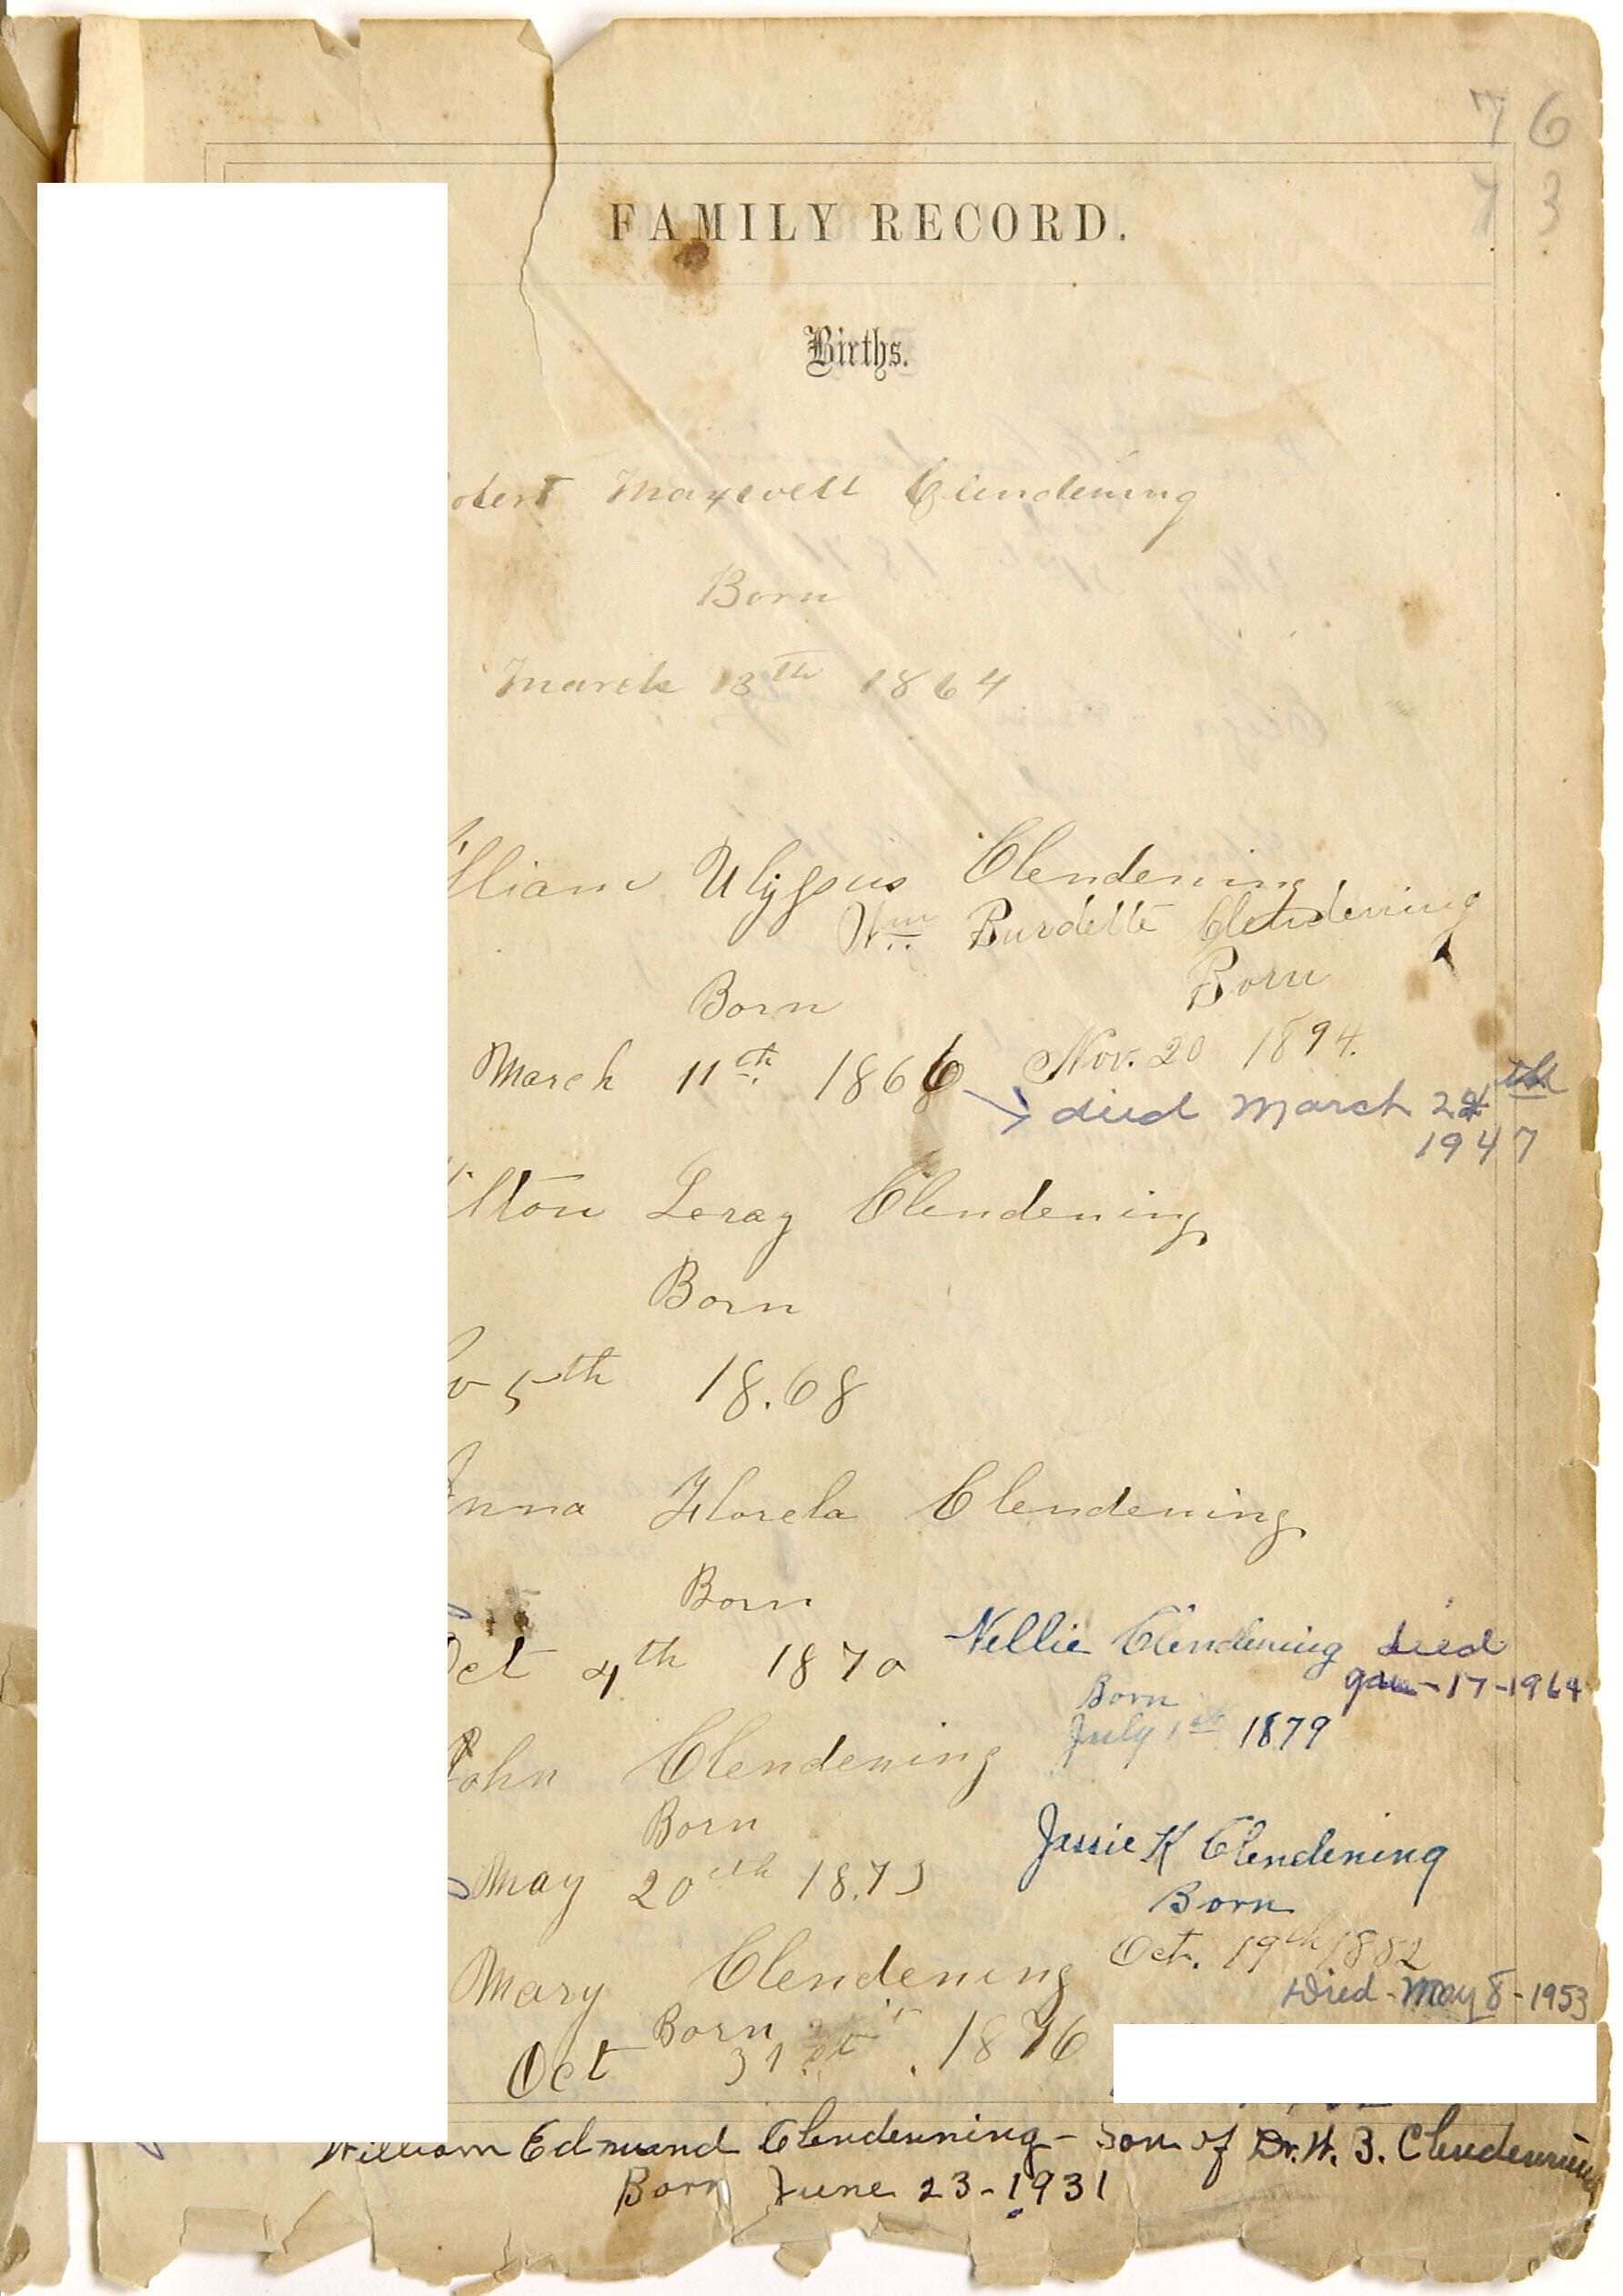 76
73
FAMILY RECORD.
Births.
Maxwell Clendening
Born
March 13th 1864
Ulysses Clendening
Wm Burdette Clendening
Born
Born
March 11th 1866
Nov. 20 1894.
died March 24th
1947
Leray Clendening
Born
5th 18.68
Florela Clendening
Born
Oct 4th 1870
Nellie Clendening died
Jan-17-1964
Born
July 1st 1879
John Clendening
Born
May 20th 18.73
Jessie K Clendening
Born
Oct. 19th 1882
Died-May 8-1953
Mary Clendening
Born
Oct 31st. 1876
William Edmund Clendenning - Son of Dr. W. B. Clendenning
Born June 23-1931